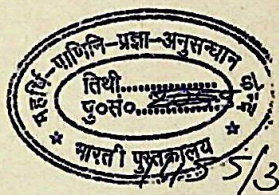 महर्षि-पाणिनि-प्रज्ञा-अनुसन्धान
तिथी..............
पु०सं०
भारती पुस्तकालय
5/3